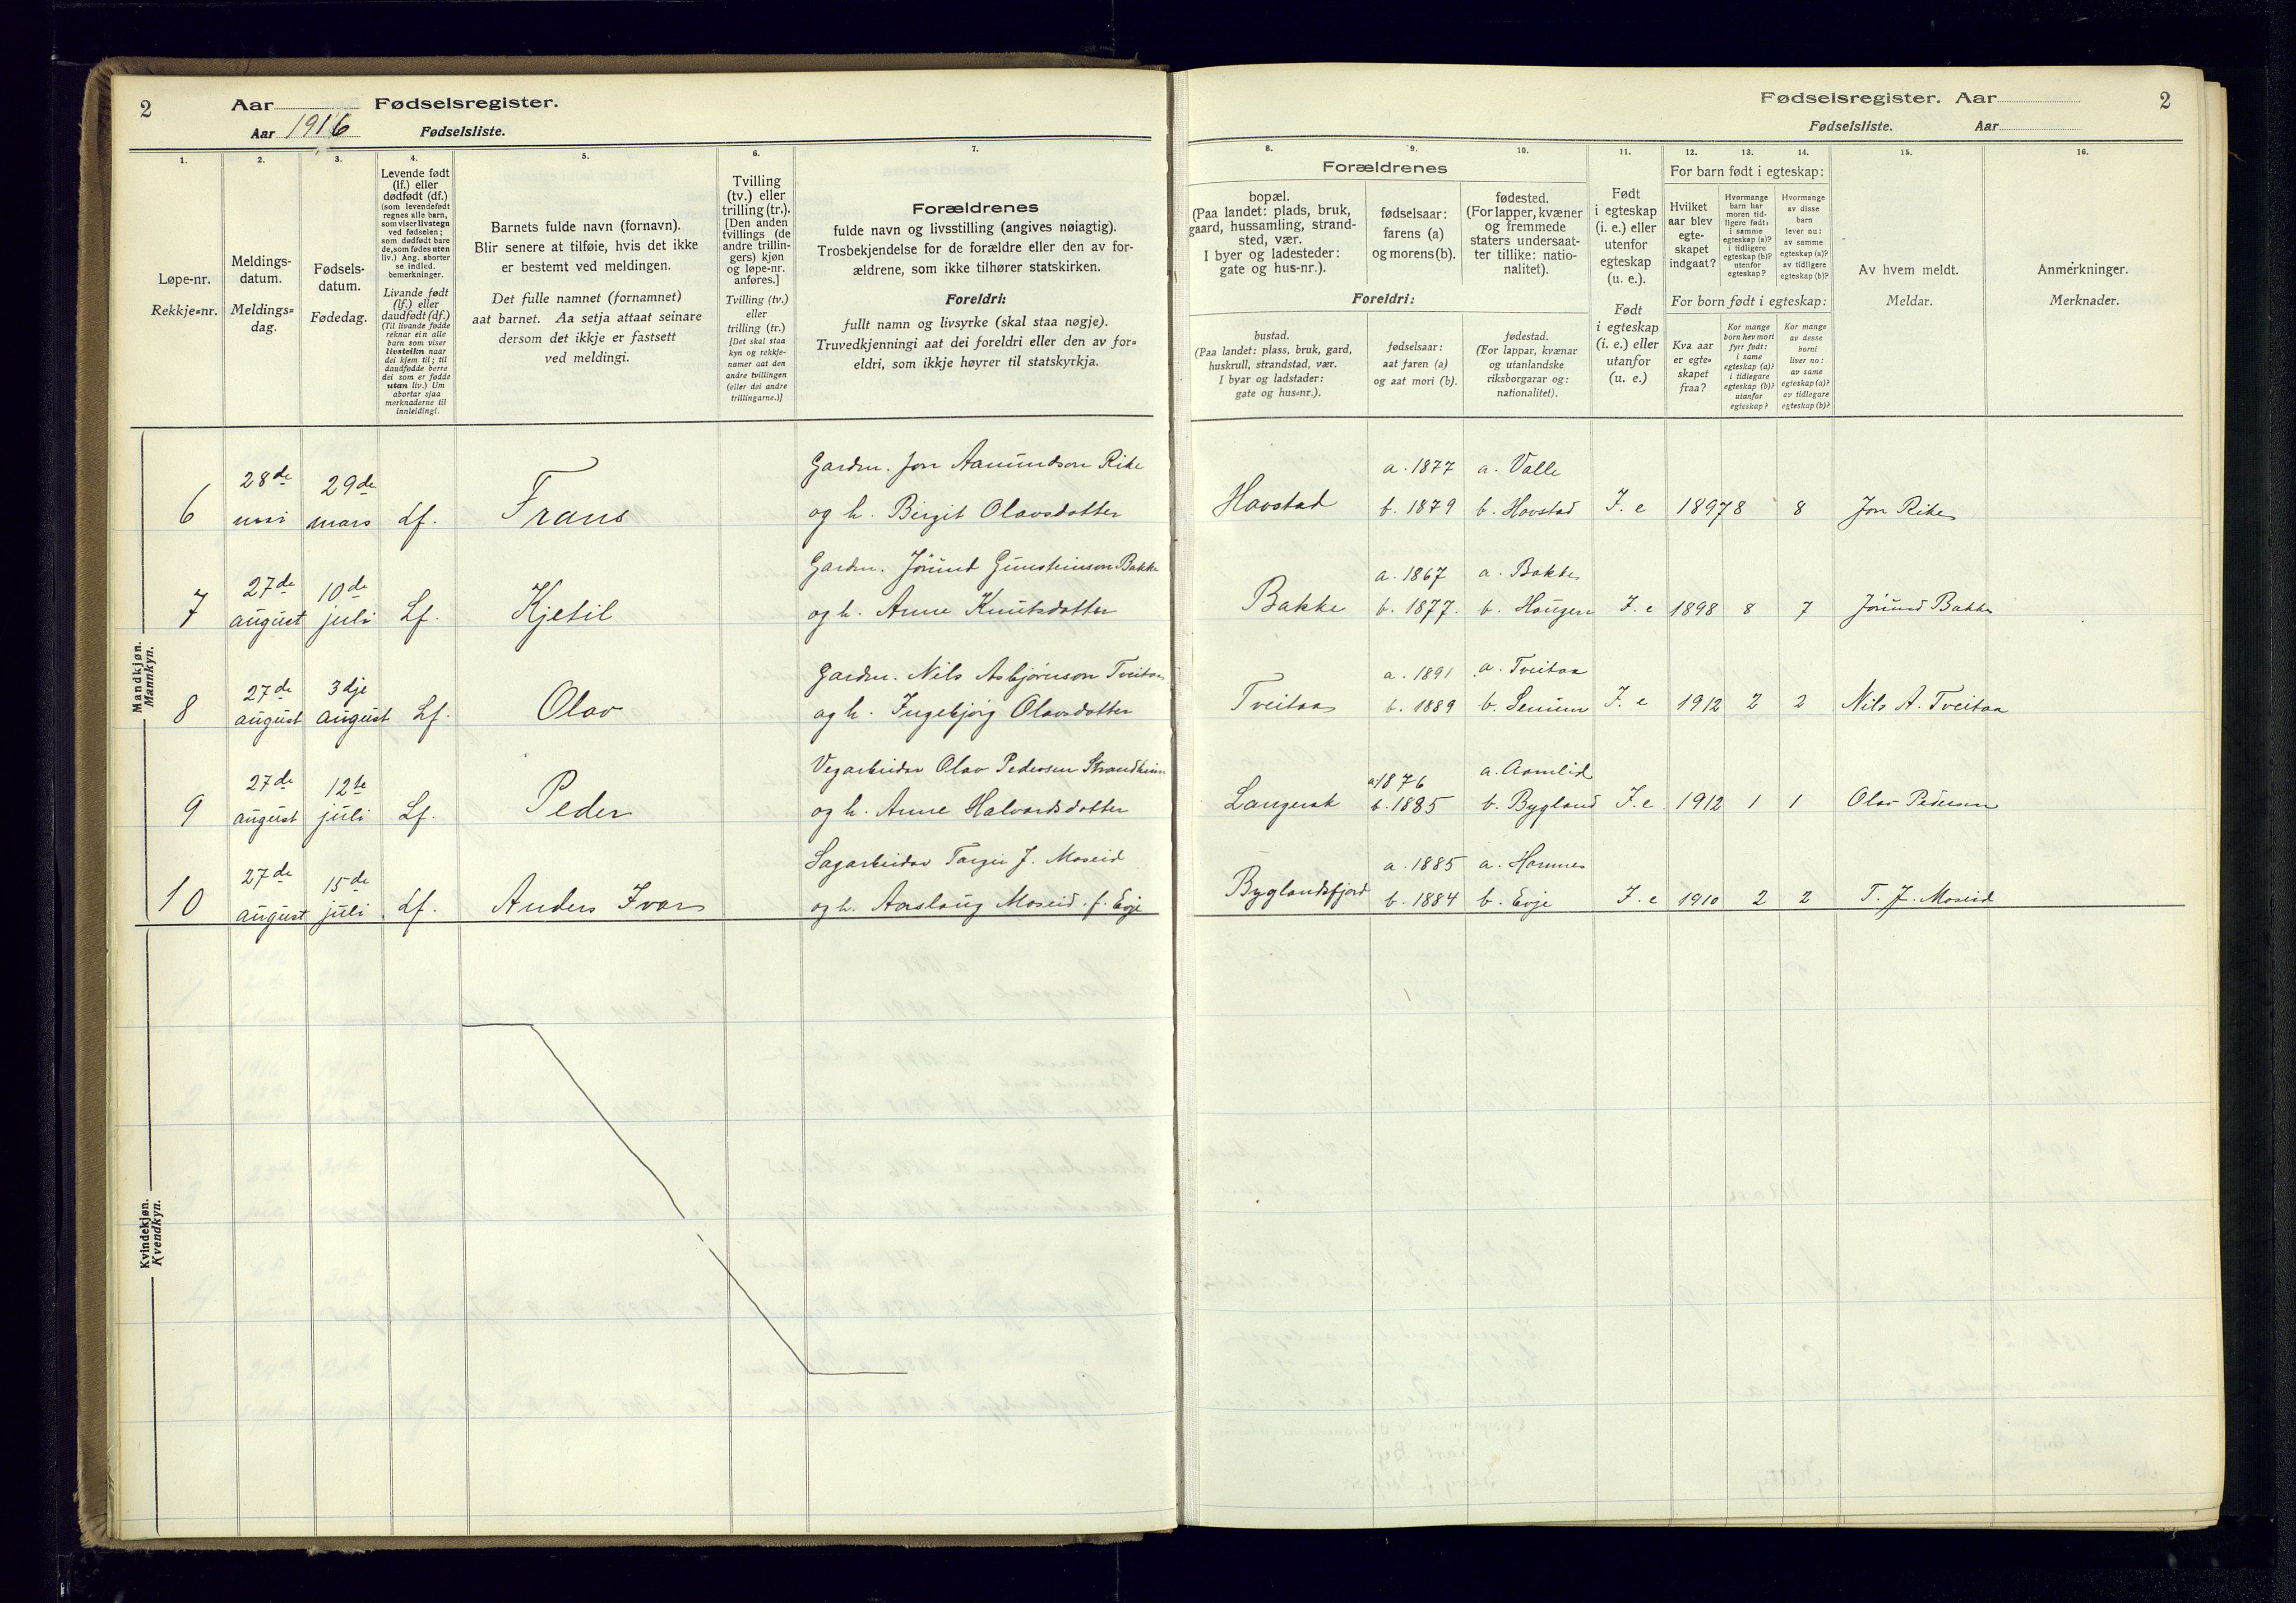 2 Aar Fødselsregister.
Aar 1916 Fødselsliste.
Fødselsregister. Aar 2
Fødselsliste. Aar
1.
Løpe-nr.
Rekkje=nr.
2.
Meldings-
datum.
Meldings=
dag.
3.
Fødsels-
datum.
Fødedag.
4.
Levende født
(lf.) eller
dødfødt (df.)
(som levendefødt
regnes alle barn,
som viser livstegn
ved fødselen;
som dødfødt bare
de, som fødes uten
liv.) Ang. aborter
se indled.
bemerkninger.
Livande født
(lf.) eller
daudfødt (df.)
(Til livande fødde
reknar ein alle
barn som viser
livsteikn naar
dei kjem til; til
daudfødde berre
dei som er fødde
utan liv.) Um
abortar sjaa
merknaderne til
innleidingi.
5.
Barnets fulde navn (fornavn).
Blir senere at tilføie, hvis det ikke
er bestemt ved meldingen.
Det fulle namnet (fornamnet)
aat barnet. Aa setja attaat seinare
dersom det ikkje er fastsett
ved meldingi.
6.
Tvilling
(tv.) eller
trilling (tr.).
[Den anden
tvillings (de
andre trillin-
gers) kjøn
og løpe-nr.
anføres.]
Tvilling (tv.)
eller
trilling (tr.)
[Det skal staa
kyn og rekkje-
numer aat den
andre tvillingen
(eller dei andre
trillingarne.)]
7.
Forældrenes
fulde navn og livsstilling (angives nøiagtig).
Trosbekjendelse for de forældre eller den av for-
ældrene, som ikke tilhører statskirken.
Foreldri:
fullt namn og livsyrke (skal staa nøgje).
Truvedkjenningi aat dei foreldri eller den av for=
eldri, som ikkje høyrer til statskyrkja.
Forældrenes
8.
bopæl.
(Paa landet: plads, bruk,
gaard, hussamling, strand-
sted, vær.
I byer og ladesteder:
gate og hus-nr.).
9.
fødselsaar:
farens (a)
og morens (b).
10.
fødested.
(For lapper, kvæner
og fremmede
staters undersaat-
ter tillike: natio-
nalitet).
Foreldri:
bustad.
(Paa landet: plass, bruk, gard,
huskrull, strandstad, vær.
I byar og ladstader:
gate og hus=nr.).
fødselsaar:
aat faren (a)
og aat mori (b).
fødestad.
(For lappar, kvænar
og utanlandske
riksborgarar og:
nationalitet).
11.
Født
i egteskap
(i. e.) eller
utenfor
egteskap
(u. e.).
Født
i egteskap
(i. e.) eller
utanfor
(u. e.)
For barn født i egteskap:
12.
Hvilket
aar blev
egte-
skapet
indgaat?
13.
Hvormange
barn har
moren tid-
ligere født:
i samme
egteskap (a)?
i tidligere
egteskap (b)?
utenfor
egteskap?
14.
Hvormange
av disse
barn
lever nu:
av samme
egteskap (a)?
av tidligere
egteskap (b)?
For born født i egteskap:
Kva aar
er egte=
skapet
fraa?
Kor mange
born hev mori
fyrr født:
i same
egteskap (a)?
i tidlegare
egteskap (b)?
utanfor
egteskap?
Kor mange
av desse
borni
liver no:
av same
egteskap (a)?
av tidlegare
egteskap (b)?
15.
Av hvem meldt.
Meldar.
16.
Anmerkninger.
Merknader.
Mandkjøn.
Mannkyn.
Gardm. Jon Aamundson Rike a. 1877 a. Valle
6 28de mai 29de mars Lf. Frans og h. Birgit Olavsdotter Havstad b. 1879 b. Hovstad I. e 1897 8 8 Jon Rike
Gardm. Jørund Gunsteinson Bakke a. 1867 a. Bakke
7 27de august 10de juli Lf. Kjetil og h. Anne Knutsdotter Bakke b. 1877. b. Haugen I. e 1898 8 7 Jørund Bakke
Gardm. Nils Asbjørnson Tveitaa a. 1891 a. Tveitaa
8 27de august 3dje august Lf. Olav og h. Ingebjørg Olavsdotter Tveitaa b. 1889 b. Senum I. e 1912 2 2 Nils A. Tveitaa
Vegarbeidar Olav Pedersen Strandheim a. 1876 a. Aamlid
9 27de august 12te juli Lf. Peder og h. Anne Halvardsdotter Langerak b. 1885 b. Bygland I. e. 1912 1 1 Olav Pedersen
Sagarbeidar Targei J. Moseid a. 1885 a. Hornnes
10 27de august 15de juli Lf. Anders Ivar og h. Aaslaug Moseid f. Evje Byglandsfjord b. 1884 b. Evje I. e 1910 2 2 T. J. Moseid
Kvindekjøn.
Kvendkyn.